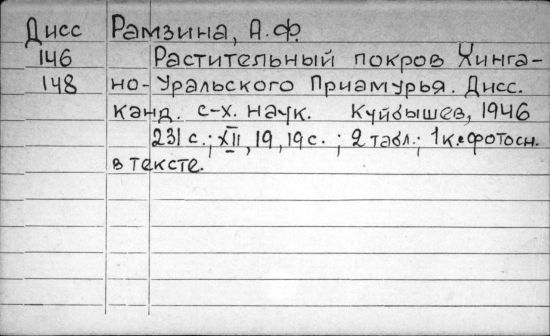 Дисс Рамзина, А.Ф.
146 Растительный покров Хинга-
148 но-Уральского Приамурья. Дисс.
канд. с-х. наук. Куйбышев, 1946
231 с.; XII, 19, 19 с.; 2 табл.; 1 к. фотосн.
в тексте.